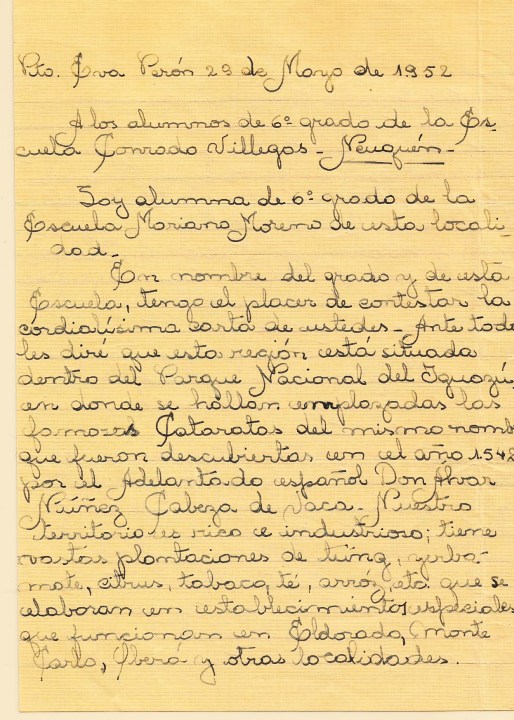 Pto. Eva Perón 29 de Mayo de 1952
A los alumnos de 6º grado de la Es-
cuela Conrado Villegas - Neuquén -
Soy alumna de 6º grado de la
Escuela Mariano Moreno de esta locali-
dad.-
En nombre del grado y de esta
Escuela, tengo el placer de contestar la
cordialísima carta de ustedes - Ante todo
les diré que esta región está situada
dentro del Parque Nacional del Iguazú,
en donde se hallan emplazadas las
famosas Cataratas del mismo nomb
que fueron descubiertas en el año 1.542
por el Adelantado español Don Alvar
Núñez Cabeza de Vaca - Nuestro
territorio es rico e industrioso; tiene
vastas plantaciones de tung, yerba-
mate, citrus, tabaco, té, arróz, etc. que se
elaboran en establecimientos especiales
que funcionan en Eldorado, Monte
Carlo, Oberá y otras localidades.